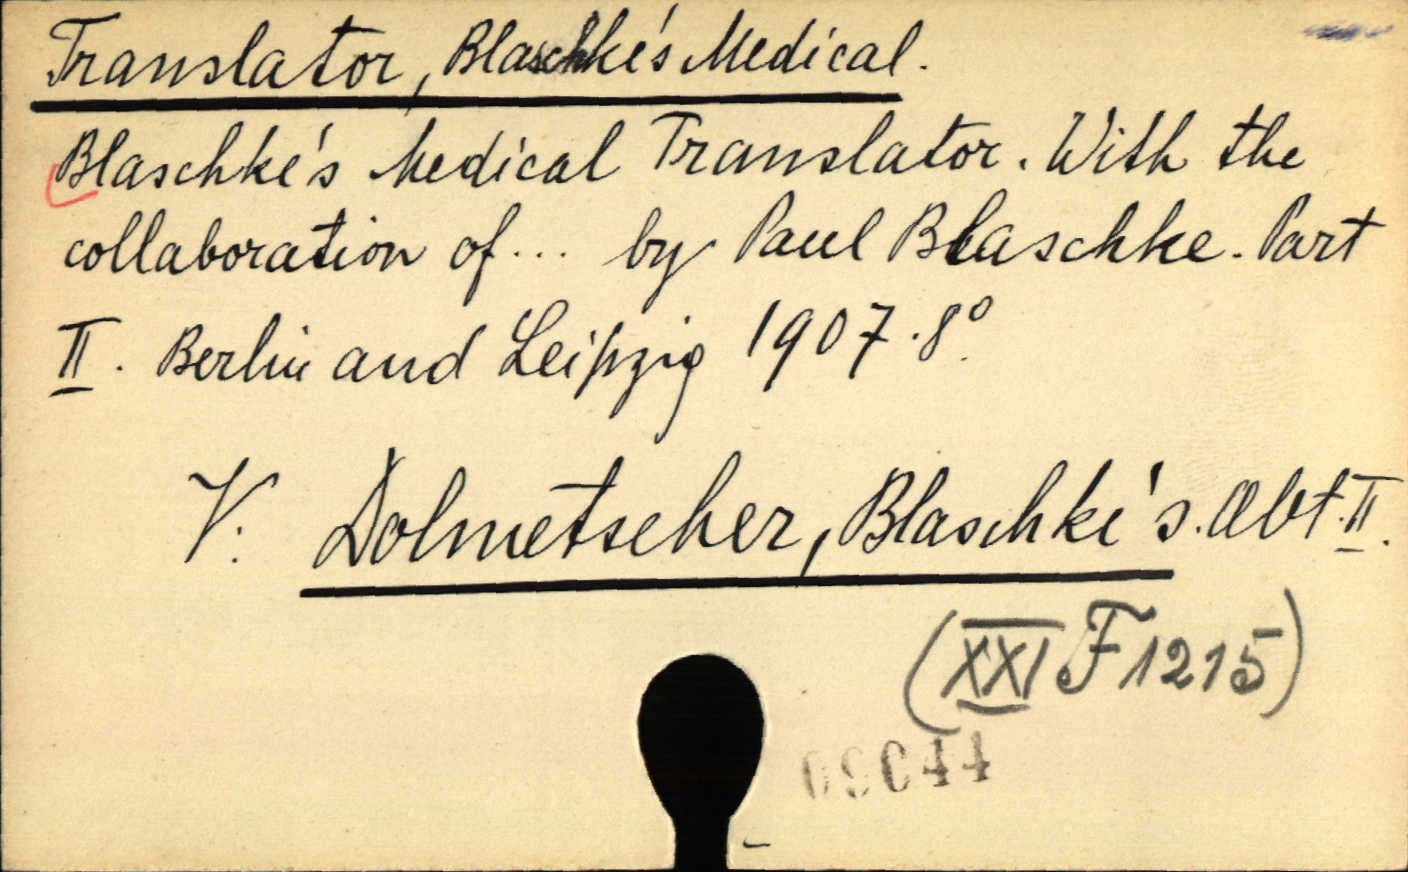 Translator, Blaschke's Medical.
Blaschke's Medical Translator. With the
collaboration of... by Paul Blaschke. Part
II. Berlin and Leipzig 1907. 8°.
V. Dolmetscher, Blaschke's. Abt. II.
(XXI F 1215)